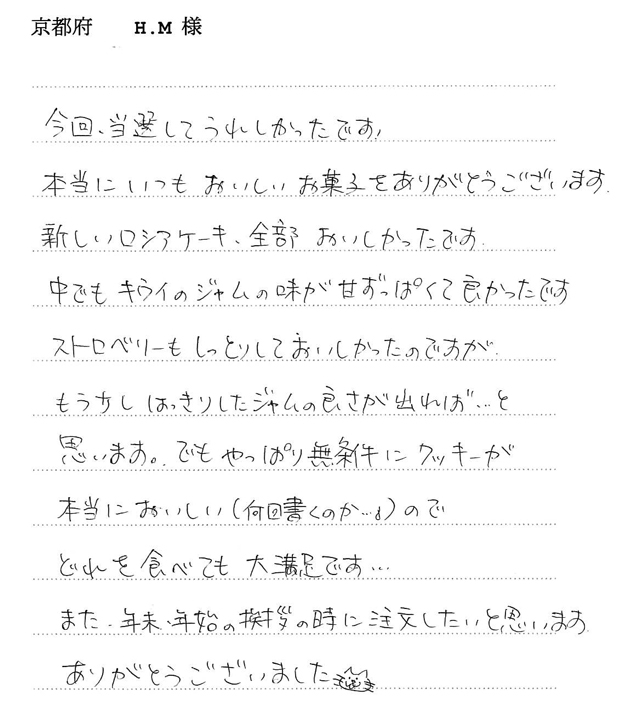 京都府　H.M 様
今回、当選してうれしかったです！
本当にいつも おいしい お菓子をありがとうございます.
新しいロシアケーキ、全部 おいしかったです.
中でも キウイのジャムの味が 甘ずっぱくて良かったです
ストロベリーも しっとりしておいしかったのですが.
もう少し はっきりしたジャムの良さが出れば…と
思います。でも やっぱり無条件に クッキーが
本当においしい(何回書くのか…。)ので
どれを食べても 大満足です…
また、年末、年始の挨拶の時に注文したいと思います.
ありがとうございました